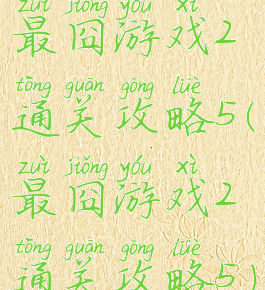 zuì jiǒng yóu xì
最囧游戏2
tōng guān gōng lüè
通关攻略5(
zuì jiǒng yóu xì
最囧游戏2
tōng guān gōng lüè
通关攻略5)